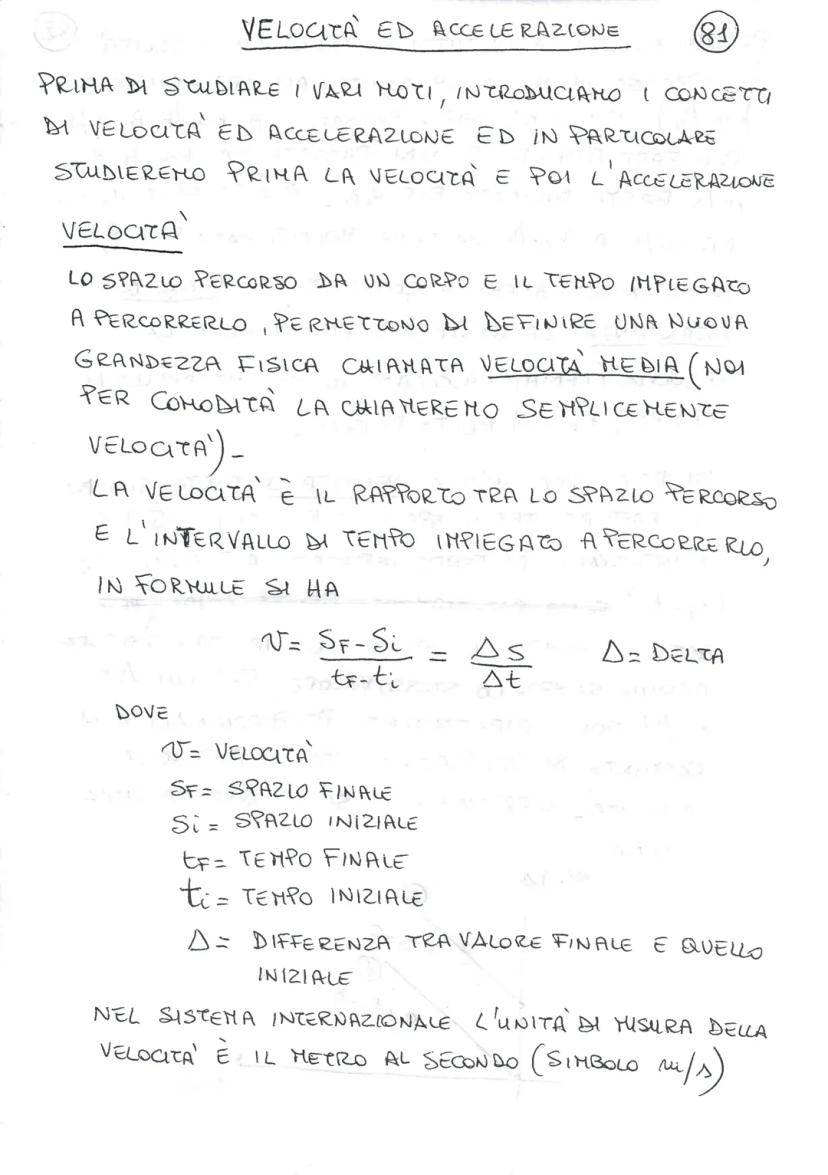 VELOCITÀ ED ACCELERAZIONE 81
PRIMA DI STUDIARE I VARI MOTI, INTRODUCIAMO I CONCETTI
DI VELOCITÀ ED ACCELERAZIONE ED IN PARTICOLARE
STUDIEREMO PRIMA LA VELOCITÀ E POI L'ACCELERAZIONE
VELOCITÀ
LO SPAZIO PERCORSO DA UN CORPO E IL TEMPO IMPIEGATO
A PERCORRERLO, PERMETTONO DI DEFINIRE UNA NUOVA
GRANDEZZA FISICA CHIAMATA VELOCITÀ MEDIA (NOI
PER COMODITÀ LA CHIAMEREMO SEMPLICEMENTE
VELOCITA')_
LA VELOCITÀ È IL RAPPORTO TRA LO SPAZIO PERCORSO
E L'INTERVALLO DI TEMPO IMPIEGATO A PERCORRERLO,
IN FORMULE SI HA
v = (SF - Si) / (tF - ti) = Δs / Δt Δ = DELTA
DOVE
v = VELOCITÀ
SF = SPAZIO FINALE
Si = SPAZIO INIZIALE
tF = TEMPO FINALE
ti = TEMPO INIZIALE
Δ = DIFFERENZA TRA VALORE FINALE E QUELLO
INIZIALE
NEL SISTEMA INTERNAZIONALE L'UNITÀ DI MISURA DELLA
VELOCITÀ È IL METRO AL SECONDO (SIMBOLO m/s)